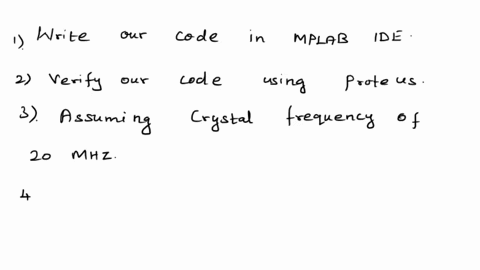 1) Write our code in MPLAB IDE.
2) Verify our code using Proteus.
3). Assuming Crystal frequency of
20 MHZ.
4